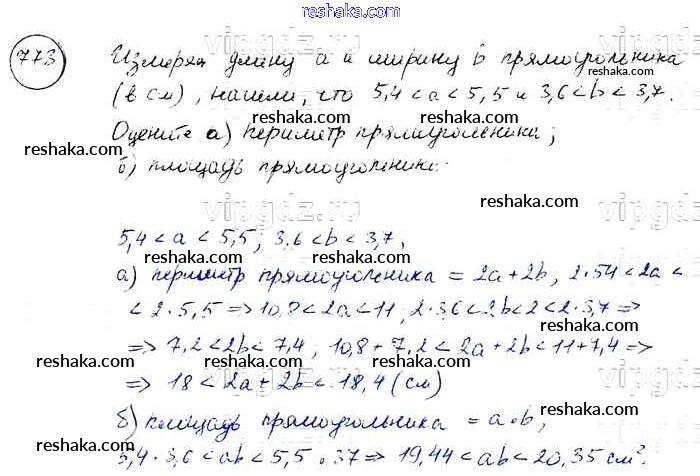 reshaka.com
773 Измеряя длину a и ширину b прямоугольника
reshaka.com
(в см), нашли, что 5,4 < a < 5,5 и 3,6 < b < 3,7.
Оцените а) периметр прямоугольника;
reshaka.com
б) площадь прямоугольника.
reshaka.com
vipgdz.ru
reshaka.com
5,4 < a < 5,5; 3,6 < b < 3,7,
reshaka.com
а) периметр прямоугольника = 2a + 2b; 2·54 < 2a <
< 2·5,5 => 10,8 < 2a < 11; 2·3,6 < 2b < 2 < 2·3,7 =>
reshaka.com
=> 7,2 < 2b < 7,4; 10,8 + 7,2 < 2a + 2b < 11 + 7,4 =>
reshaka.com
=> 18 < 2a + 2b < 18,4 (см)
reshaka.com
б) площадь прямоугольника = a·b;
reshaka.com
5,4·3,6 < ab < 5,5·37 => 19,44 < ab < 20,35 см².